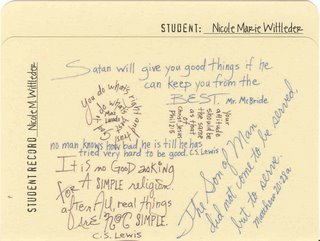 STUDENT: Nicole Marie Wittleder
STUDENT RECORD Nicole M. Wittleder
Satan will give you good things if he
can keep you from the
BEST. Mr. McBride
You do what's right and
your
attitude
should be
the same
as that of
Christ Jesus
Phil 2:5
no man knows how bad he is till he has
tried very hard to be good. C.S. Lewis
It is no Good asking
for A SIMPLE religion.
after All, real things
are NOT SIMPLE.
C.S. Lewis
The Son of Man
did not come to be served,
but to serve
Matthew 20:28a